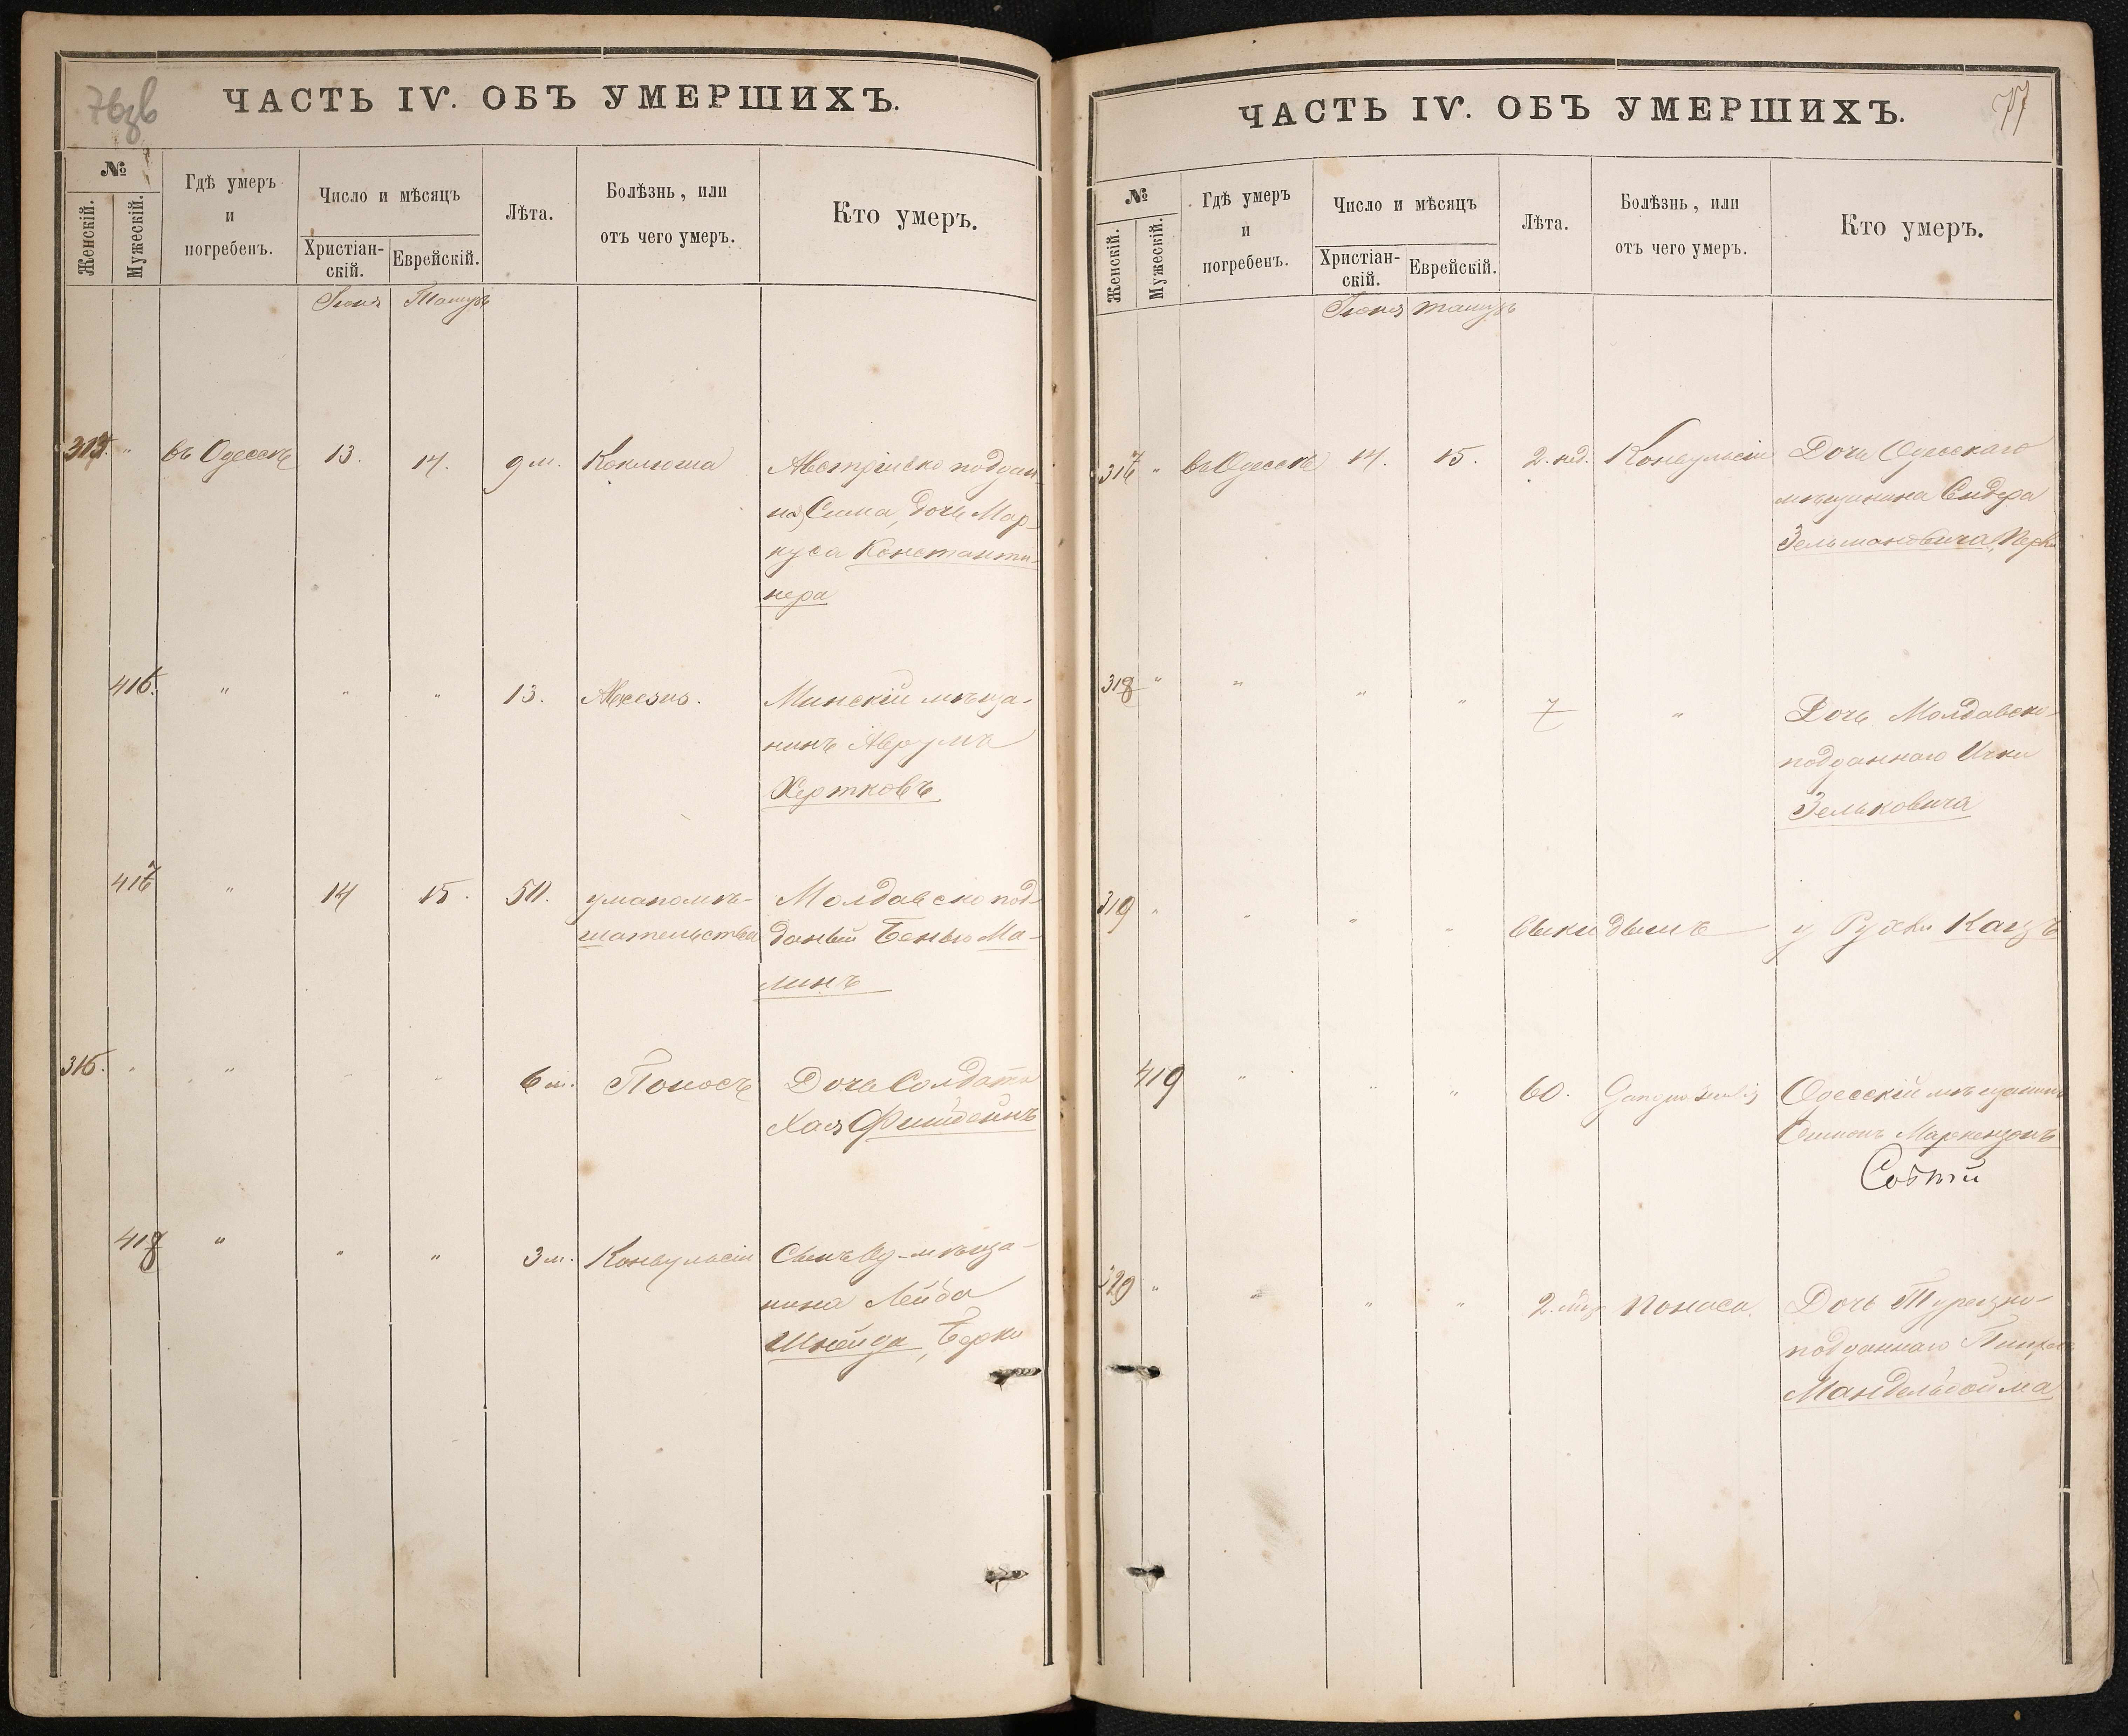 76зв
ЧАСТЬ IV. ОБЪ УМЕРШИХЪ.
№
Женскій.
Мужескій.
Гдѣ умеръ
и
погребенъ.
Число и мѣсяцъ
Христіан-
скій.
Еврейскій.
Лѣта.
Болѣзнь, или
отъ чего умеръ.
Кто умеръ.
Іюня Тамузъ
315. " въ Одессѣ 13. 14. 9 м. Коклюша Австрійско поддан
ная Сима, дочь Мар-
куса Константи-
нера
416. " " " 13. Минскій мѣща-
нинъ Аврумъ
Хертковъ
417 " 14 15. 50. умапомѣ- Молдавско под-
шательства данный Бенью Ма-
линъ
316. " " " " 6 м. Поносъ Дочь Солдата
Хая
418 " " " 3 м. Конвульсіи Сынъ Од. мѣща-
нина Лейба
Шнейда, Берко
77
ЧАСТЬ IV. ОБЪ УМЕРШИХЪ.
№
Женскій.
Мужескій.
Гдѣ умеръ
и
погребенъ.
Число и мѣсяцъ
Христіан-
скій.
Еврейскій.
Лѣта.
Болѣзнь, или
отъ чего умеръ.
Кто умеръ.
Іюня тамузъ
317 " въ Одессѣ 14. 15. 2. нед. Конвульсіи Дочь Одесскаго
мѣщанина Сидера
Зельмановича,
318 " " " " 7 " Дочь Молдавско-
подданнаго Ички
Зельковича
319 " " " " Выкидышъ у Рухли Кацъ
419 " " " 60. Одесскій мѣщанинъ
320 " " " " 2. мѣс. поноса. Дочь Турецко-
подданнаго
Мандельбойма